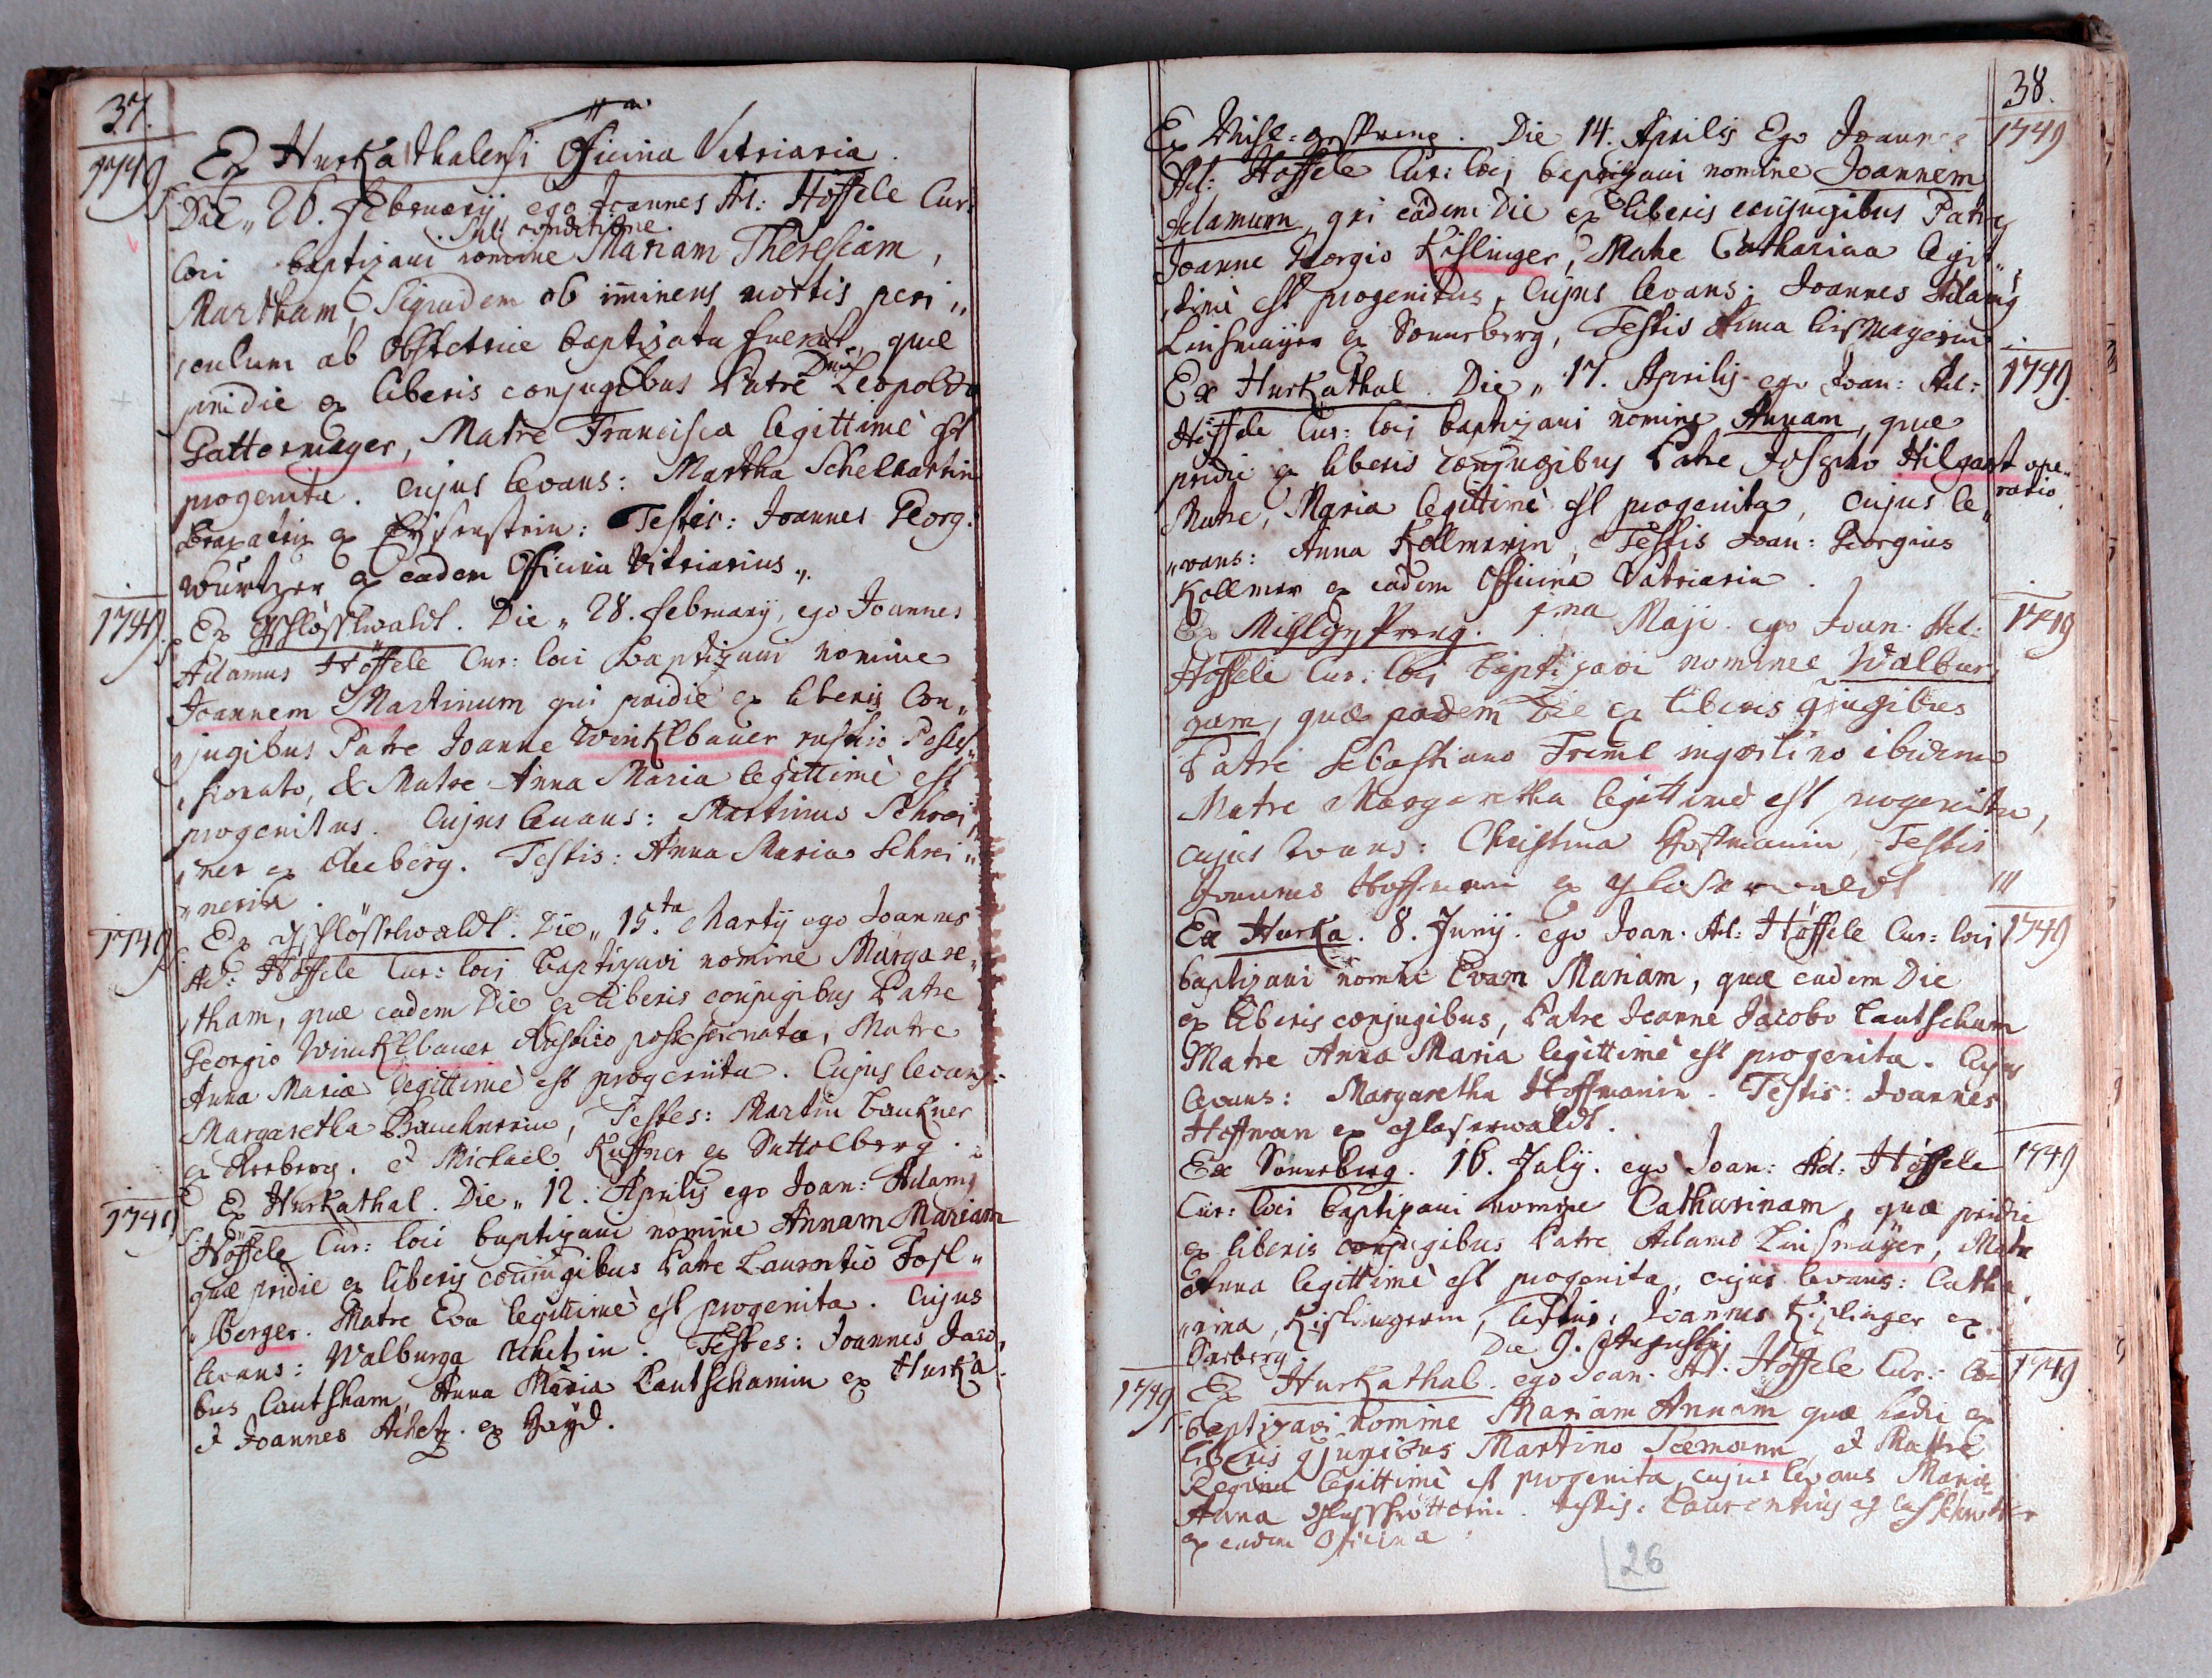 37.
1749
Ex Hurkathalensi Officina Vitriaria.
Die „ 26. Februarÿ ego Joannes Ad: Höffele Cur:
sub conditione
loci baptizavi nomine Mariam Theresiam,
Martham, Siquidem ob iminens mortis peri„
culum ab Obstetrice baptizata fuerat, quæ
pridie ex liberis conjugibus Patre Dno Leopoldo
Gattermayer, Matre Francisca legittimè est
progenita. Cujus levans: Martha
ex Eysenstein: Testes: Joannes Georg.
Würtzer ex eadem Officina Vitriarius „.
1749.
Ex Gschlösslwaldt. Die „ 28. Februarÿ, ego Joannes
Adamus Höffele Cur: loci baptizavi nomine
Joannem Martinum qui pridie ex liberis Con„
jugibus Patre Joanne Winklbauer rustico Posses„
sionato, & Matre Anna Maria legittimè est
progenitus. Cujus levans: Martinus Schrei„
ner ex Reeberg. Testis: Anna Maria Schrei„
„nerin.
1749
Ex Gschlösslwaldt. Die „ 15.ta Martÿ ego Joannes
Ad: Höffele Cur: loci baptizavi nomine Margare„
tham, quæ eadem Die ex liberis conjugibus Patre
Georgio Wincklbauer Rustico possessionato, Matre
Anna Maria legittimè est progenita. Cujus levans:
Margaretha, Testes: Martin
ex Reeberg. et Michael Kuffner ex Sattelberg.
1749
Ex Hurkathal. Die „ 12. Aprilis ego Joan: Adam9
Höffele Cur: loci baptizavi nomine Annam Mariam
quæ pridie ex liberis conjugibus Patre Laurentio Fosl„
„berger. Matre Eva legittimè est progenita. Cujus
levans: Walburga Achetzin. Testes: Joannes Jaco„
bus Lautsham, Anna Maria Lautschamin ex Hurka.
et Joannes Achetz. ex Hayd.
38.
1749
Ex Mihl=gespreng. Die 14. Aprilis Ego Joannes
Ad: Höffele Cur: loci baptizavi nomine Joannem
Adamum, qui eadem Die ex liberis conjugibus Patre
Joanne Georgio Kislinger, Matre Catharina legit„
timè est progenitus, Cujus levans: Joannes Adam9
Linsmayer ex Sonnberg, Testis Anna
1749.
Ex Hurkathal. Die „ 17. Aprilis ego Joan: Ad:
Höffele Cur: loci baptizavi nomine Annam, quæ
pridie ex liberis conjugibus Patre Josepho Hilgart ope„
rario
Matre, Maria legittimè est progenita, cujus le„
„vans: Anna Kollmerin, Testis Joan: Georgius
Kollmer ex eadem Officina Vitriaria.
1749
Ex Mihlgspreng. 1.ma Maji. ego Joan. Ad:
Höffele Cur: loci baptizavi nomine Walbur„
gam, quæ eadem Die ex liberis
Patre Sebastiano Treml inquilino ibidem
Matre Margaretha legittimè est progenita,
cujus levans: Christina Hoffmanin, Testis
Joannes Hoffmann ex Glaserwaldt
1749
Ex Hurka. 8. Junÿ. ego Joan. Ad: Höffele Cur: loci
baptizavi nomine Evam Mariam, quæ eadem Die
ex liberis conjugibus, Patre Joanne Jacobo Lautscham
Matre Anna Maria legittimè est progenita. Cujus
levans: Margaretha Hoffmanin. Testis: Joannes
Hoffman ex Glaserwaldt.
1749
Ex Sonnberg. 16. Julÿ. ego Joan: Ad: Höffele
Cur: loci baptizavi nomine Catharinam, quæ pridie
ex liberis conjugibus Patre Adamo Linsmayer, Matre
Anna legittimè est progenita, cujus levans: Catha„
„rina, Kislingerin, testis: Joannes Kislinger ex
Die 9. Augusti
1749
1749
Ex Hurkathal. ego Joan. Ad. Höffele Cur: loci
baptizavi nomine Mariam Annam quæ hodie ex
liberis Martino Seemann, et Matre
Regina legittimè est progenita, cujus levans Maria
Anna testis: Laurentius
ex eadem Officina
26